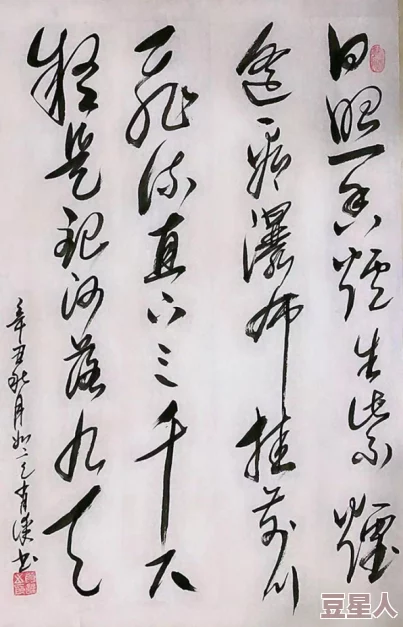 日照香炉生紫烟
遥看瀑布挂前川
飞流直下三千尺
疑是银河落九天
辛丑秋月如一
书
豆星人